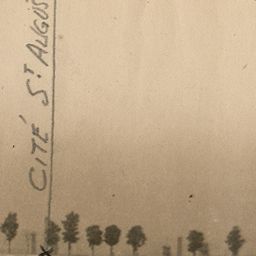 CITÉ Sᵀ AUGUS